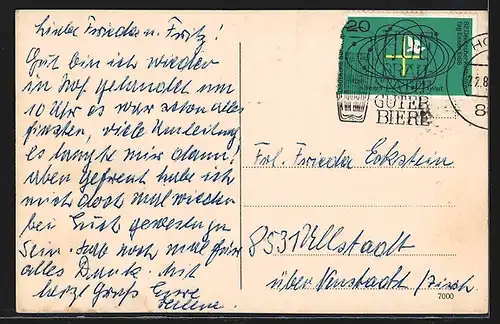 Liebe Frieda u. Fritz!
Gut bin ich wieder
in Hof gelandet um
10 Uhr es war schon alles
finster, viele Umleitung
es langte mir dann!
Aber gefreut habe ich
mich doch mal wieder
bei Euch gewesen zu
sein. Hab noch mal für
alles Dank. Mit
herzl Gruß Eure
20
GUTER
BIERE
HO
8
Frl. Frieda Eckstein
8531 Ullstadt
über Neustadt/Aisch
7000